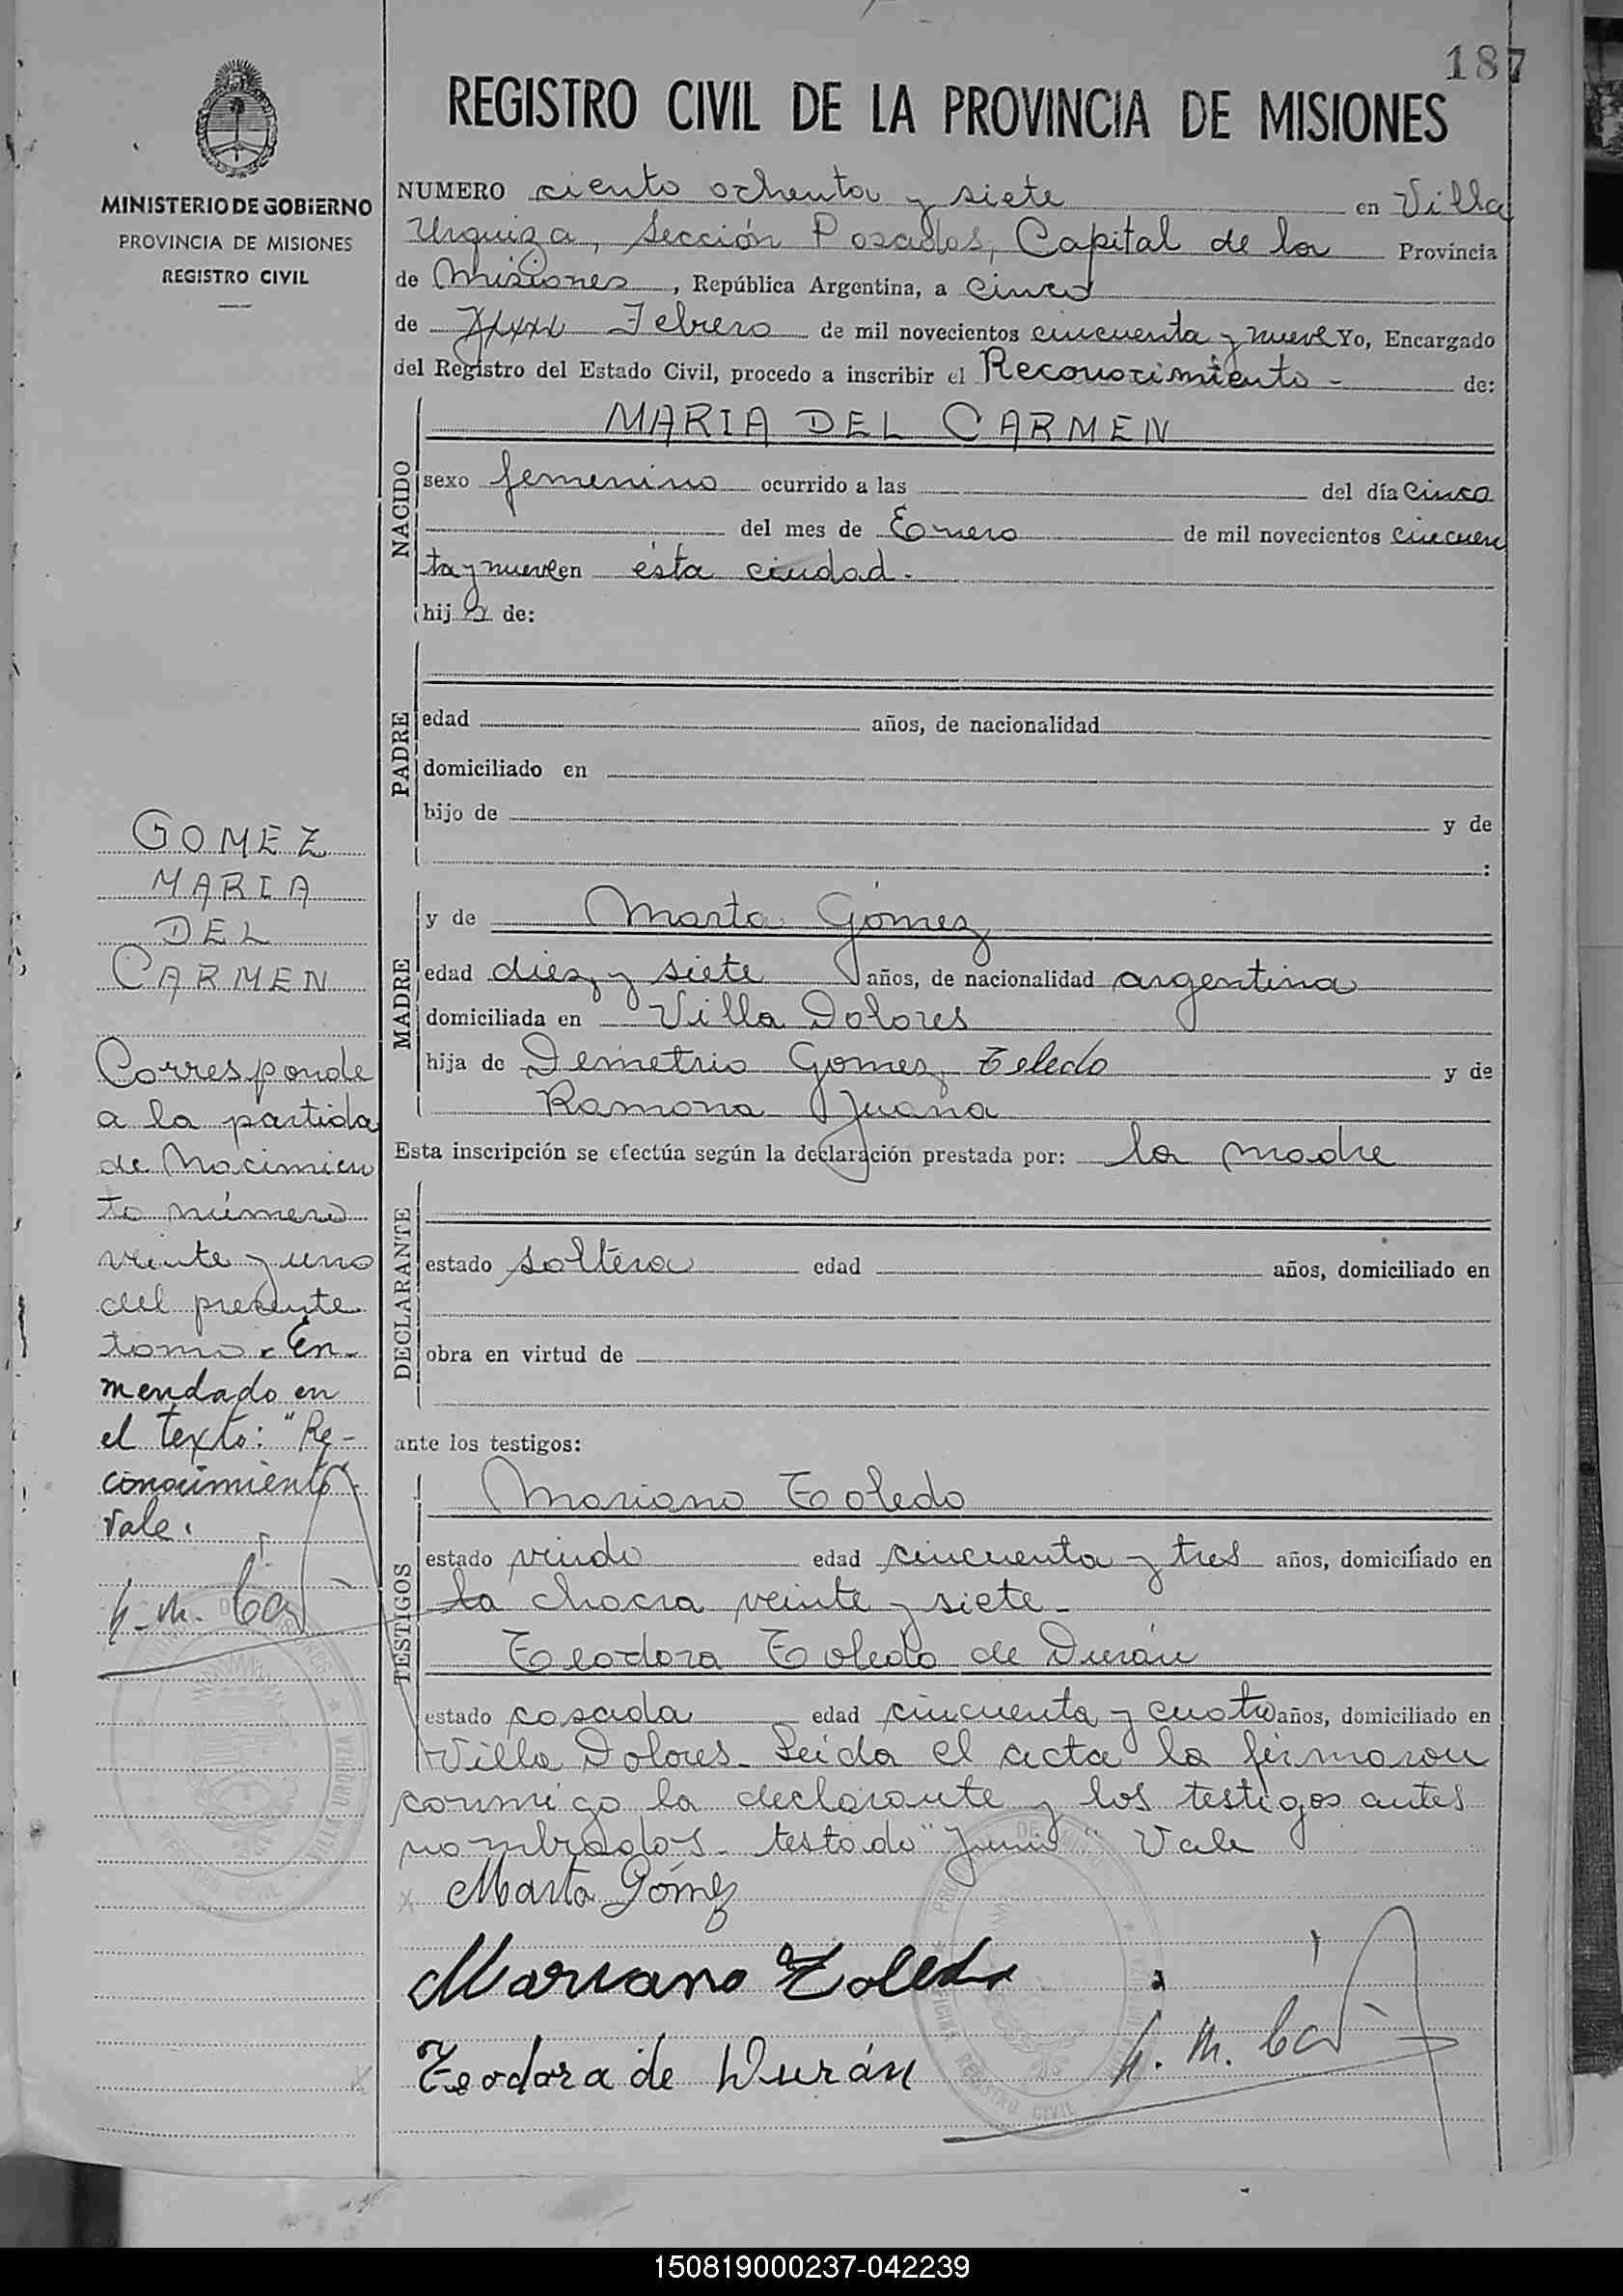 187
REGISTRO CIVIL DE LA PROVINCIA DE MISIONES
MINISTERIO DE GOBIERNO
PROVINCIA DE MISIONES
REGISTRO CIVIL
NUMERO ciento ochenta y siete en Villa
Urquiza, Sección Posadas, Capital de la Provincia
de Misiones, República Argentina, a cinco
de Febrero de mil novecientos cincuenta y nueve Yo, Encargado
del Registro del Estado Civil, procedo a inscribir el Reconocimiento - de:
NACIDO
MARIA DEL CARMEN
sexo femenino ocurrido a las del día cinco
del mes de Enero de mil novecientos cincuen
ta y nueve en ésta ciudad.
hija de:
PADRE
edad años, de nacionalidad
domiciliado en
hijo de y de
:
MADRE
y de Marta Gómez
edad diez y siete años, de nacionalidad argentina
domiciliada en Villa Dolores
hija de Demetrio Gomez, Toledo y de
Ramona Juana
Esta inscripción se efectúa según la declaración prestada por: la madre
DECLARANTE
estado soltera edad años, domiciliado en
obra en virtud de
ante los testigos:
TESTIGOS
Mariano Toledo
estado viudo edad cincuenta y tres años, domiciliado en
la chacra veinte y siete -
Teodora Toledo de Durán
estado casada edad cincuenta y cuatro años, domiciliado en
Villa Dolores - Leida el acta la firmaron
conmigo la declarante y los testigos antes
nombrados - testado "Junio" Vale
Marta Gómez
Mariano Toledo
Teodora de Durán
GOMEZ
MARIA
DEL
CARMEN
Corresponde
a la partida
de Nacimien
to número
veinte y uno
del presente
tomo. En-
mendado en
el texto: "Re-
conocimiento"
Vale.
150819000237-042239